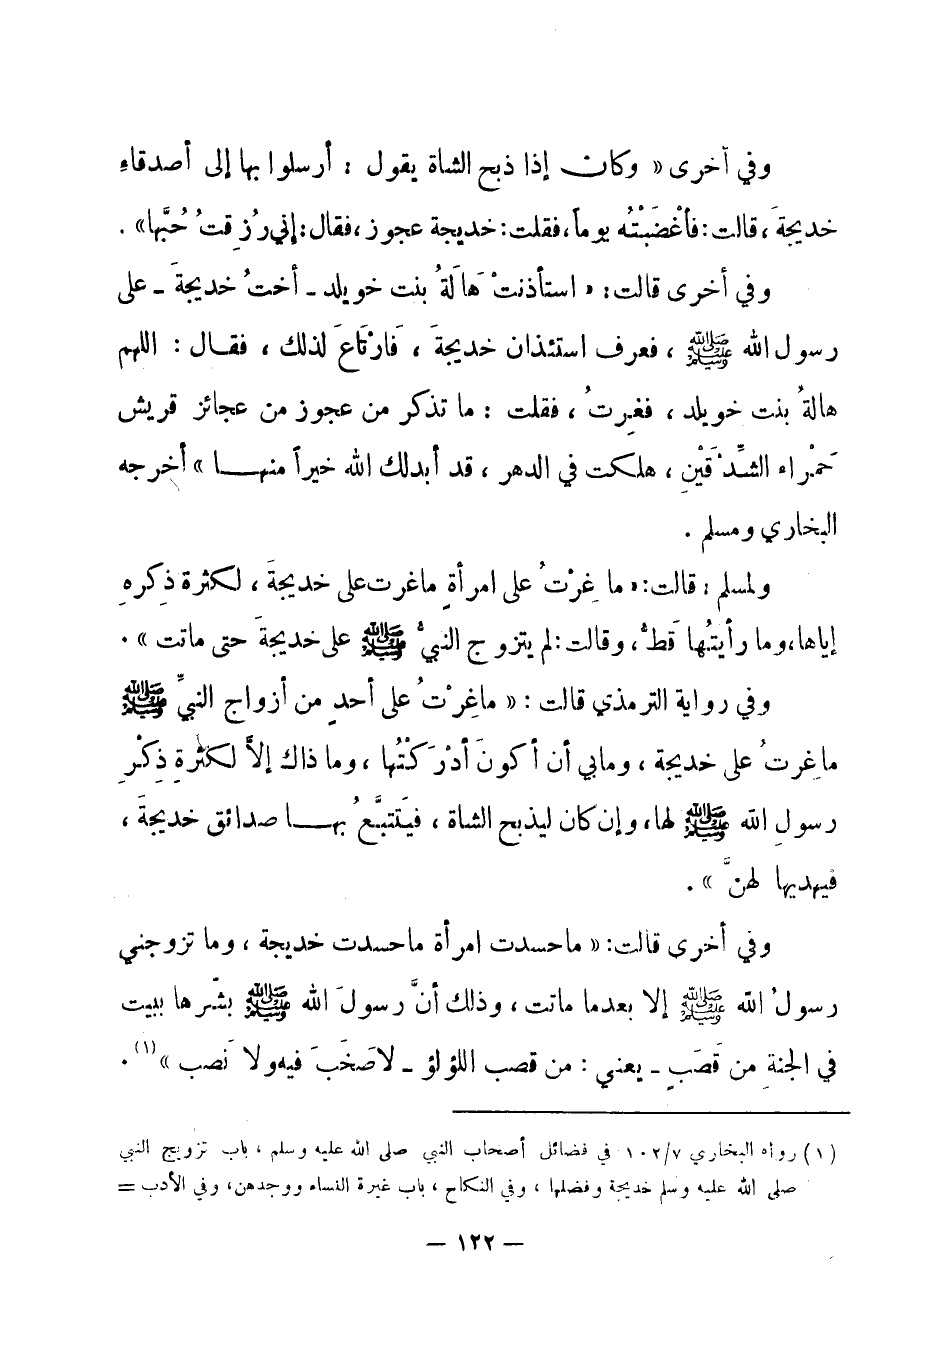 وفي أخرى « وكان إذا ذبح الشاة يقول : أرسلوا بها إلى أصدقاءِ
خديجةَ ، قالت : فأغْضَبْتُه يوماً ، فقلت : خديجة عجوز ، فقال : إني رُزِقتُ حُبَّها » .
وفي أخرى قالت : « استأذنتْ هَالَةُ بنت خويلد ـ أختُ خديجةَ ـ على
رسول الله ﷺ ، فعرف استئذان خديجةَ ، فَارْتَاعَ لذلك ، فقال : اللهم
هالةُ بنت خويلد ، فغِرتُ ، فقلت : ما تذكر من عجوز من عجائز قريش
حَمْراء الشِّدْقَيْنِ ، هلكت في الدهر ، قد أبدلك الله خيراً منها » أخرجه
البخاري ومسلم .
ولمسلم : قالت : « ما غِرْتُ على امرأةٍ ما غرت على خديجةَ ، لكثرة ذِكرهِ
إياها ، وما رأيتُها قَطُّ ، وقالت : لم يتزوج النبيُّ ﷺ على خديجةَ حتى ماتت » .
وفي رواية الترمذي قالت : « ماغِرْتُ على أحدٍ من أزواج النبيِّ ﷺ
ماغِرتُ على خديجة ، ومابي أن أكونَ أدْرَكْتُها ، وما ذاك إلاَّ لكَثْرةِ ذِكْرِ
رسولِ الله ﷺ لها ، وإن كان ليذبح الشاة ، فيَتَتبَّعُ بها صدائق خديجةَ ،
فيهديها لهنَّ » .
وفي أخرى قالت : « ماحسدت امرأة ماحسدت خديجة ، وما تزوجني
رسولُ الله ﷺ إلا بعدما ماتت ، وذلك أنَّ رسولَ الله ﷺ بشَّرها ببيت
في الجنةِ من قَصَبٍ ـ يعني : من قصب اللؤلؤ ـ لاصَخَبَ فيه ولا نَصب »(١) .
(١) رواه البخاري ١٠٢/٧ في فضائل أصحاب النبي صلى الله عليه وسلم ، باب تزويج النبي
صلى الله عليه وسلم خديجة وفضلها ، وفي النكاح ، باب غيرة النساء ووجدهن ، وفي الأدب =
— ١٢٢ —